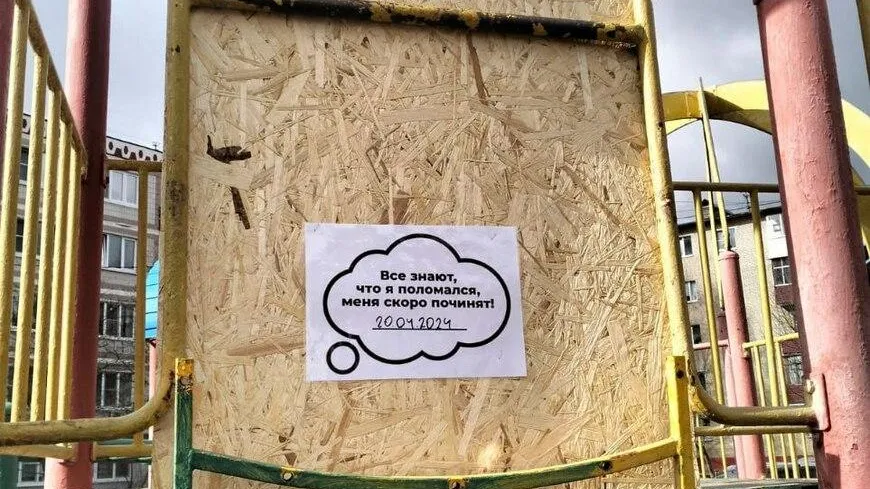 Все знают,
что я поломался,
меня скоро починят!
20.04.2024